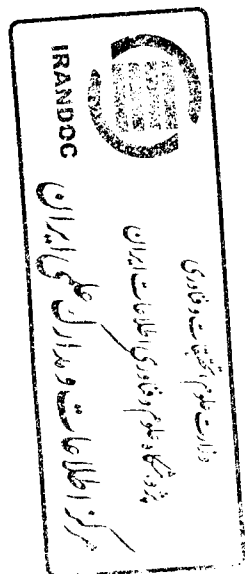 وزارت علوم، تحقیقات و فناوری
پژوهشگاه علوم و فناوری اطلاعات ایران
مرکز اطلاعات و مدارک علمی ایران
IRANDOC